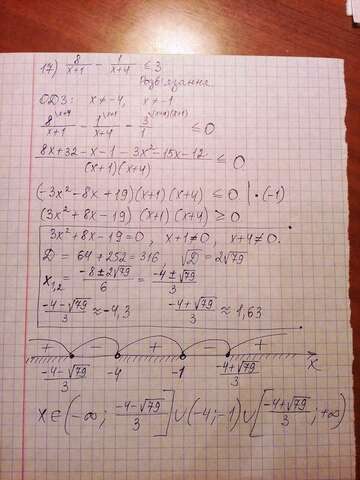 17) 8/(x+1) - 1/(x+4) ≤ 3
Розв'язання
ОДЗ: x ≠ -4, x ≠ -1
8\x+4/(x+1) - 1\x+1/(x+4) - 3\(x+4)(x+1)/1 ≤ 0
(8x+32-x-1-3x²-15x-12)/((x+1)(x+4)) ≤ 0
(-3x²-8x+19)(x+1)(x+4) ≤ 0 | · (-1)
(3x²+8x-19)(x+1)(x+4) ≥ 0
3x²+8x-19=0, x+1≠0, x+4≠0.
D = 64+252=316, √D=2√79
x1,2 = (-8±2√79)/6 = (-4±√79)/3
(-4-√79)/3 ≈ -4,3 (-4+√79)/3 ≈ 1,63
+ - + - +
(-4-√79)/3 -4 -1 (-4+√79)/3 x
x∈(-∞; (-4-√79)/3] ∪ (-4;-1) ∪ [(-4+√79)/3; +∞)